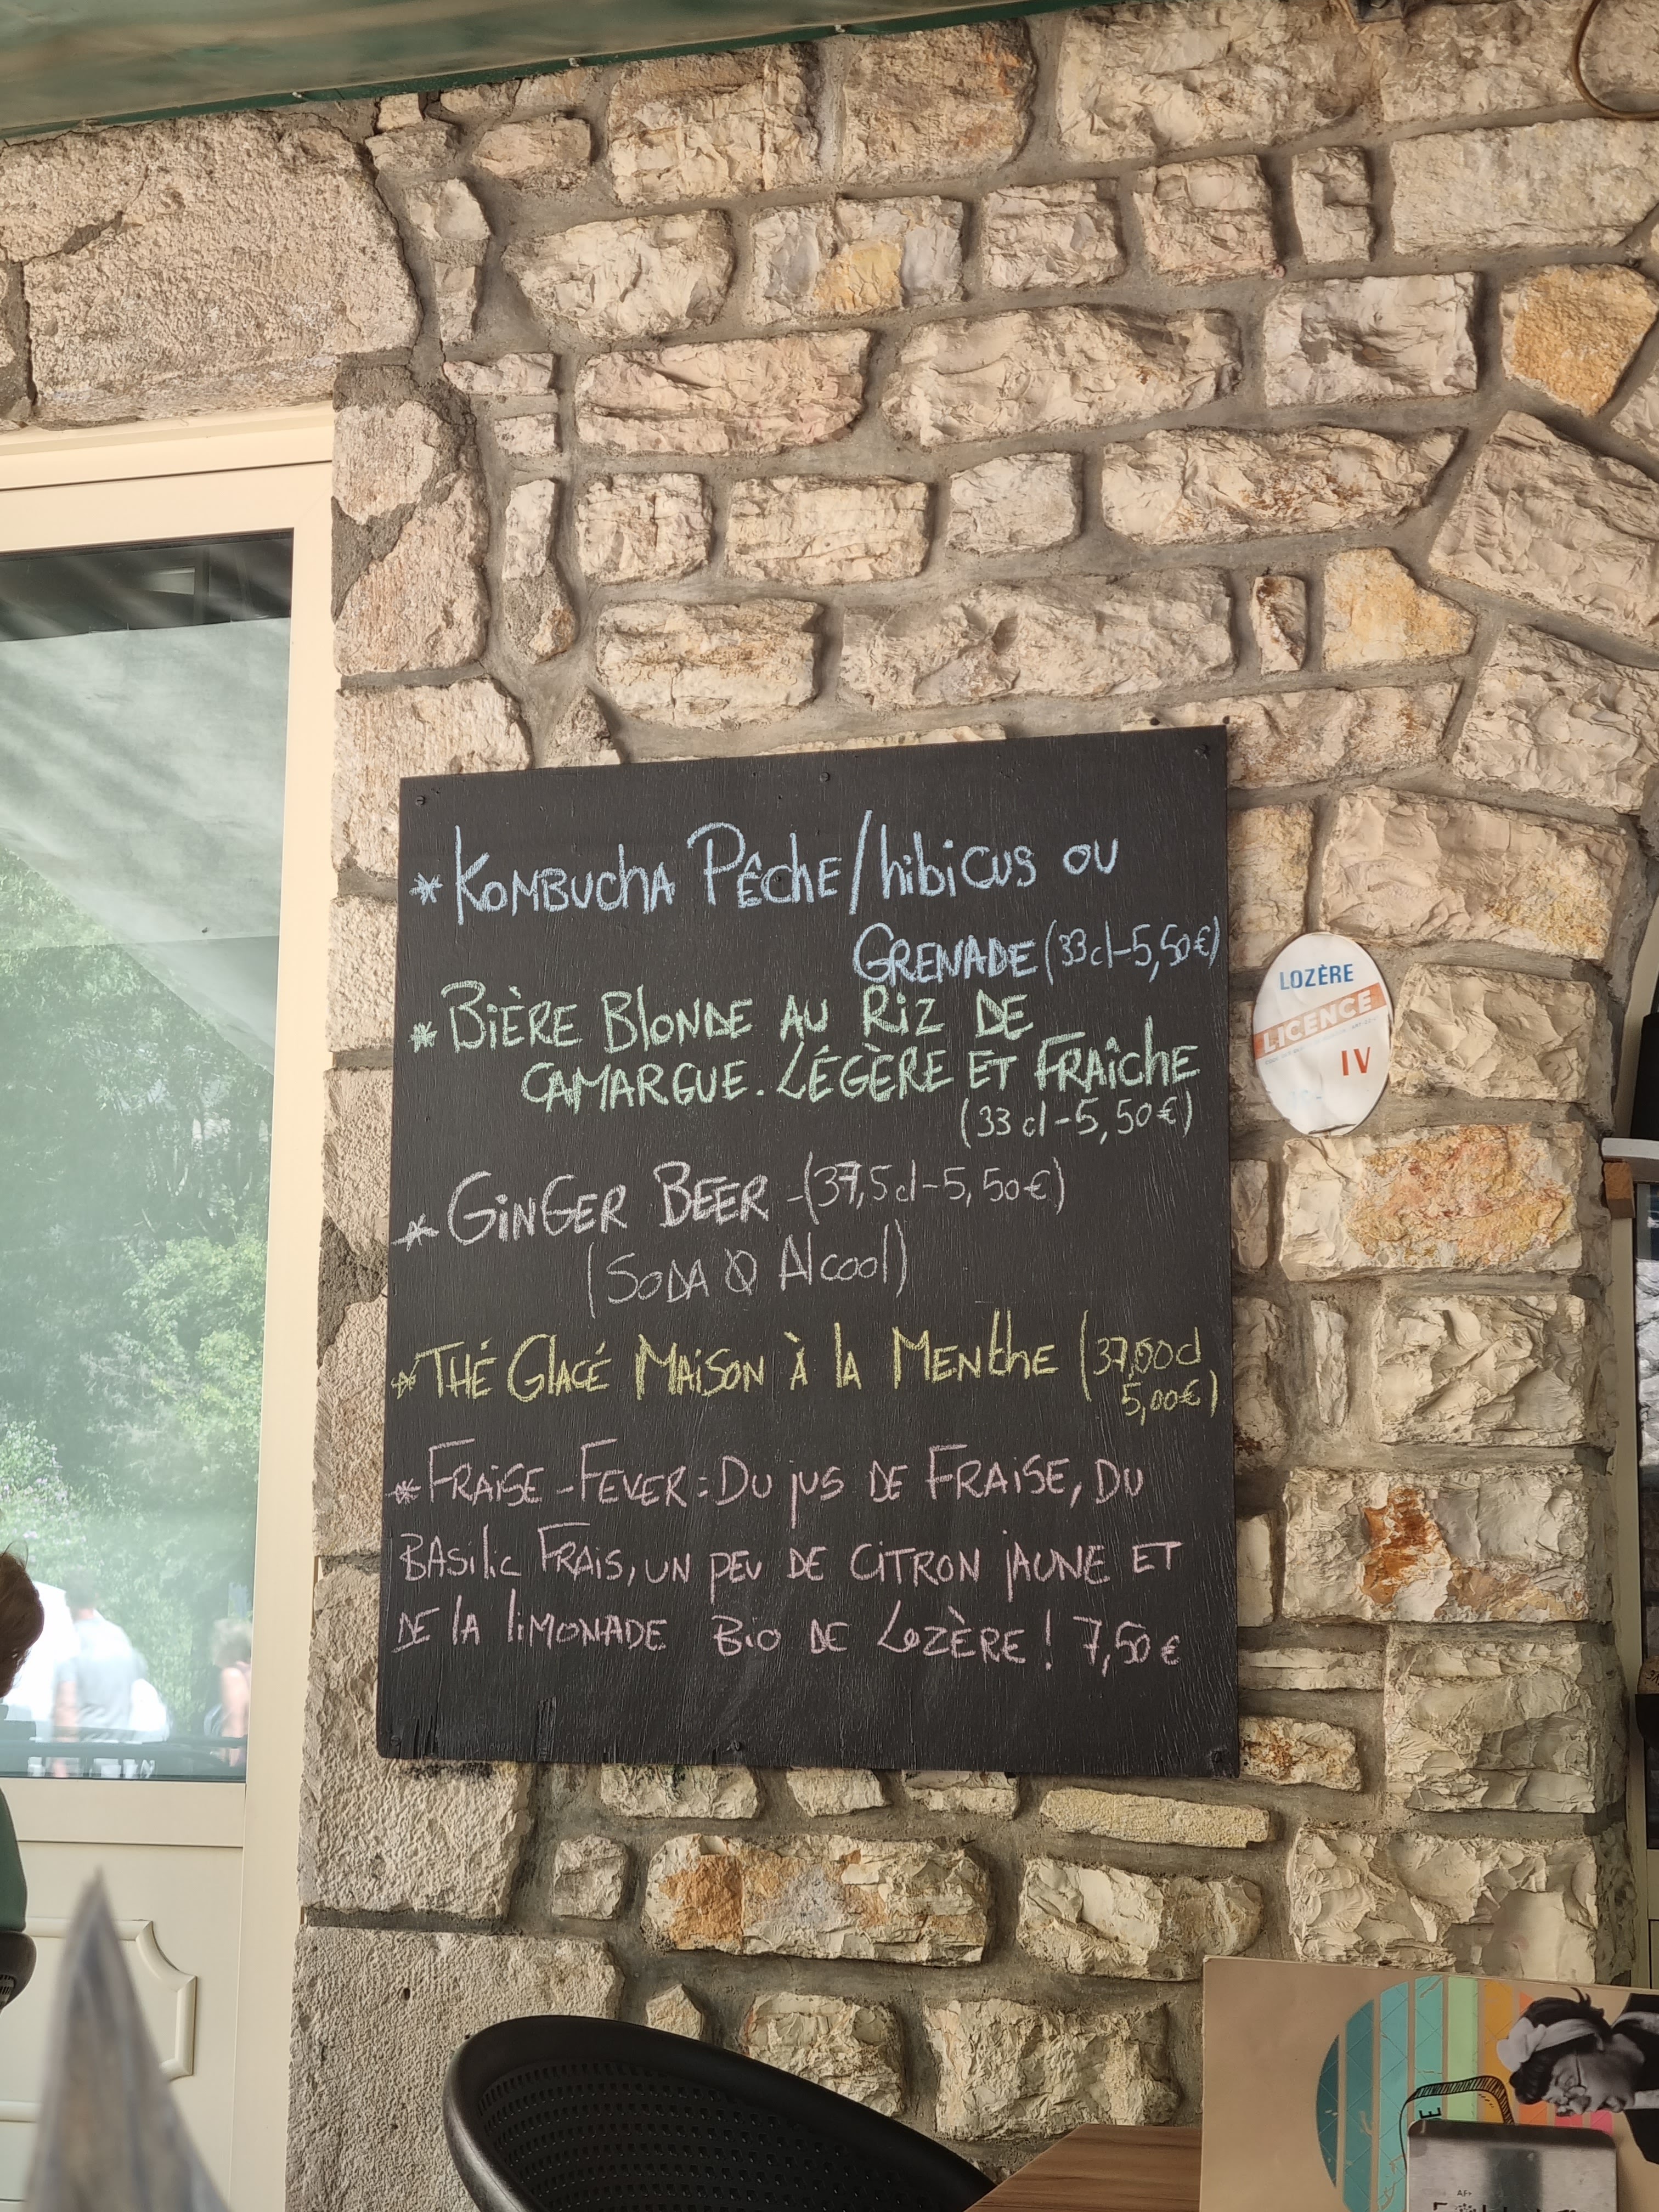 * KOMBUCHA PÊCHE/hibicus OU
GRENADE (33cl-5,50€)
* BIÈRE BLONDE AU RIZ DE
CAMARGUE. LÉGÈRE ET FRAÎCHE
(33 cl-5,50€)
* GINGER BEER -(37,5cl-5,50€)
(SODA Ø Alcool)
* THÉ GLACÉ MAISON À LA MENTHE (37,00cl
5,00€)
* FRAISE-FEVER: DU JUS DE FRAISE, DU
BASILIC FRAIS, UN PEU DE CITRON JAUNE ET
DE LA LIMONADE BIO DE LOZÈRE! 7,50€
LOZÈRE
LICENCE
IV